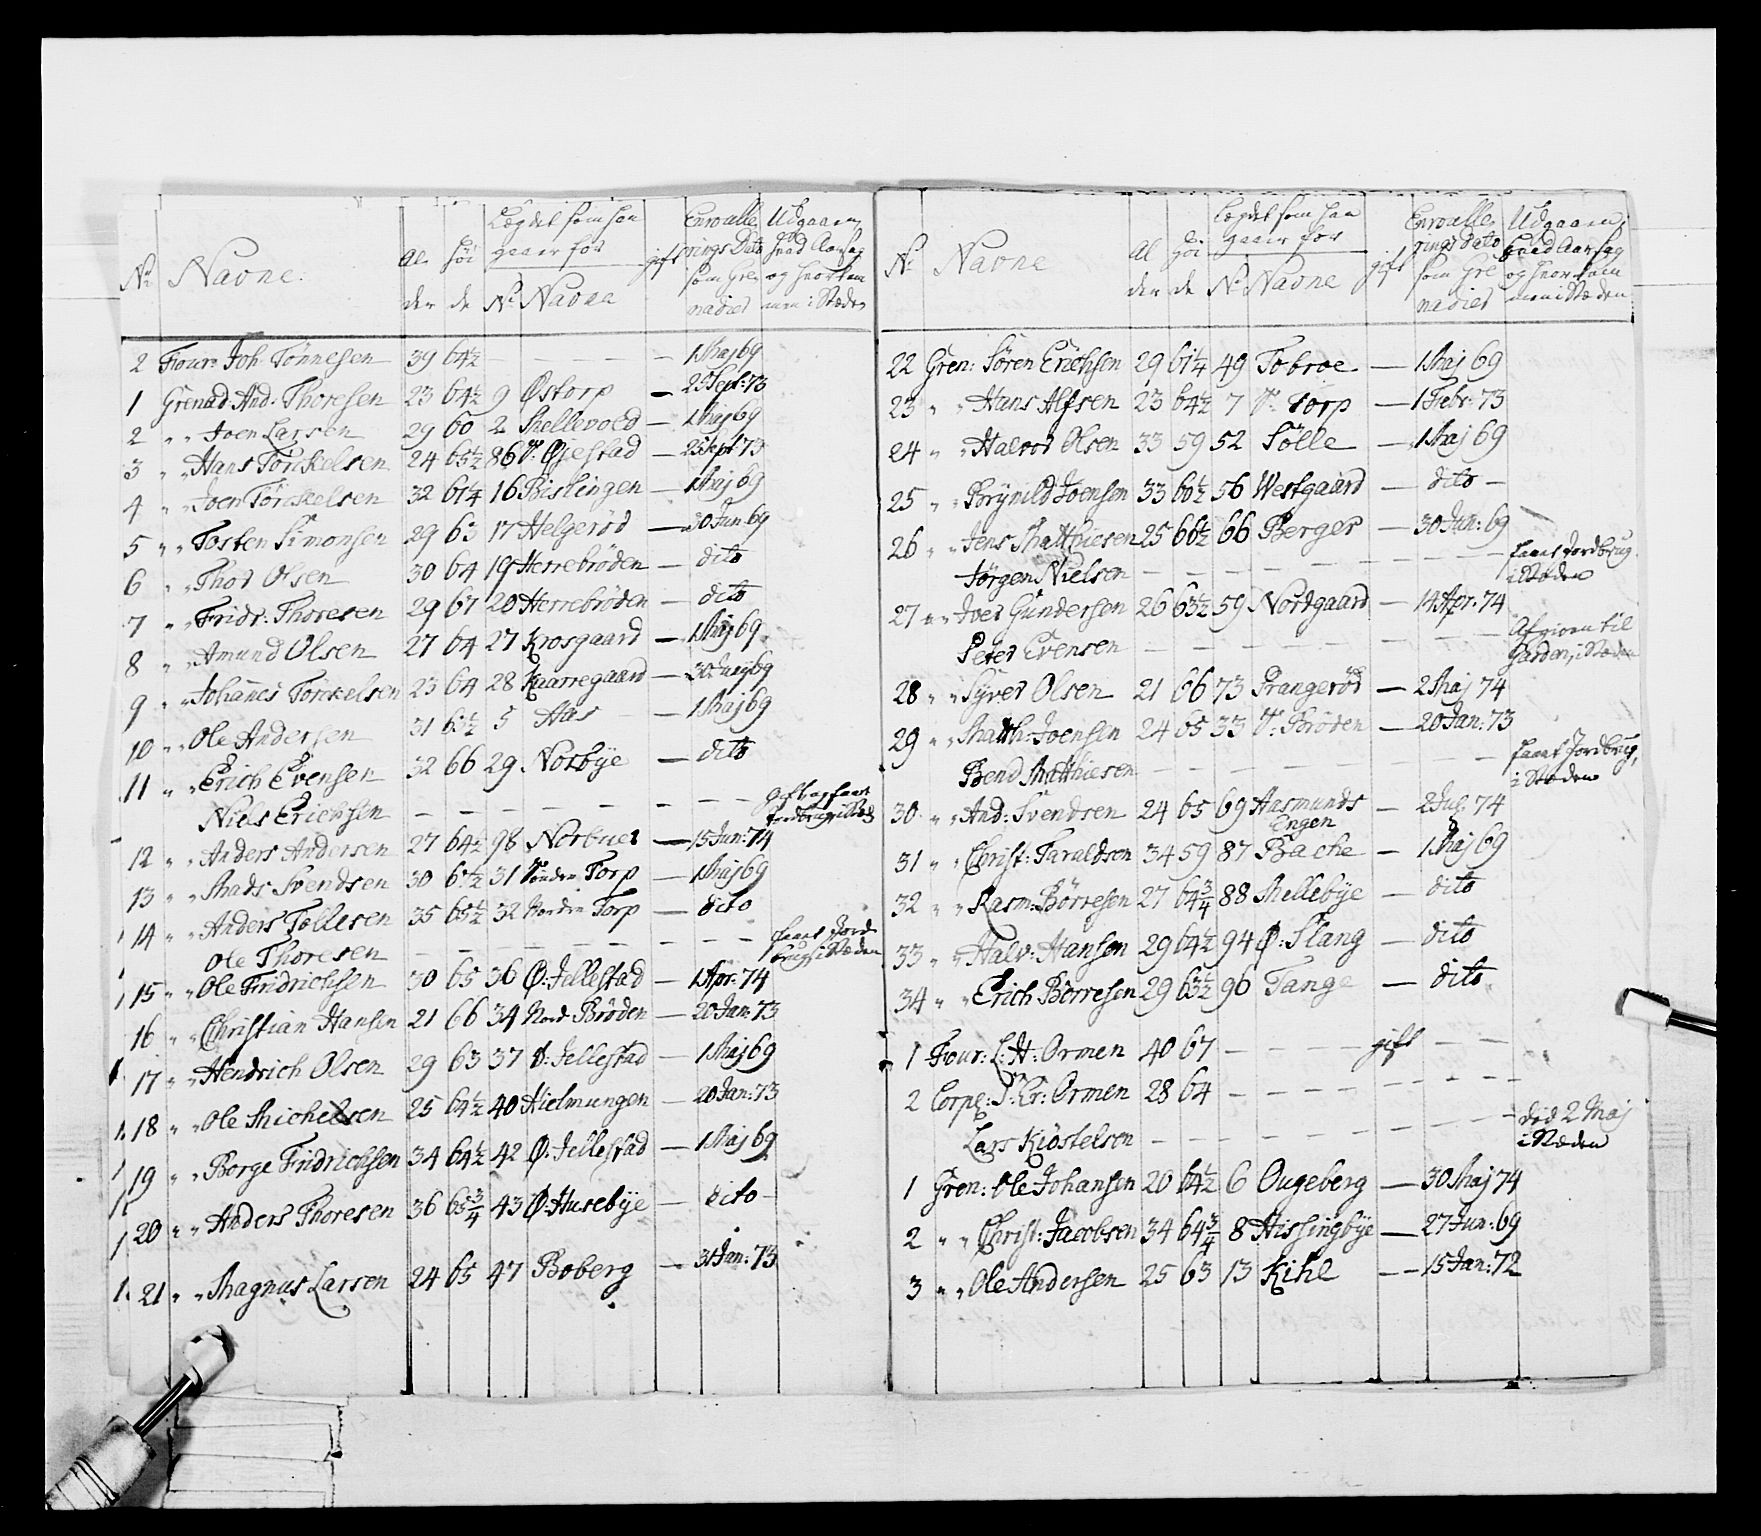 Nº Navne. Al der Høi de Lægdet som han gaaer for Nº Navne gift Enroulle rings Dato som Gre nadier Udgaaen, hvad Aarsag og hvor kom men i Stæden
2 Four: Joh Tönnesen 39 64½ — — — 1 Maj 69
1 Grenad. And. Thoresen 23 64½ 9 Østorp — 25 Sept: 73
2 " " Joen Larsen 29 60 2 Mellevold — 1 Maj 69
3 " " Hans Torckelsen 24 65½ 86 V: Øjestad — 25 Sept 73
4 " " Joen Torckelsen 32 61¼ 16 Bislingen — 1 Maj 69
5 " " Tosten Simonsen 29 63 17 Helgerød — 30 Jun 69
6 " " Thor Olsen 30 64 19 Herrebröden — dito
7 " " Fridr: Thoresen 29 67 20 Herrebröden — dito
8 " " Amund Olsen 27 64 27 Krosgaard — 1 Maj 69
9 " " Johannes Torckelsen 23 64 28 Kaarregaard — 30 Junj 69
10 " " Ole Andersen 31 6½ 5 Aas — 1 Maj 69
11 " " Erich Evensen 32 66 29 Norbye — dito
Niels Erichsen — — — — — — — gift og faaet Jordbrug i Stæd
12 " " Anders Andersen 27 64½ 98 Norbye — 15 Jun: 74
13 " " Mads Svendsen 30 6½ 31 Sönden Torp — 1 Maj 69
14 " " Anders Tollesen 35 65½ 32 Norden Torp — dito
Ole Thoresen — — — — — — — faaet Jord brug i Stæden
15 " " Ole Fridrichsen 30 65 36 Ø: Jellestad — 1 Apr: 74
16 " " Christian Hansen 21 66 34 Nord Bröden — 20 Jan: 73
17 " " Hendrich Olsen 29 63 37 V: Jellestad — 1 Maj 69
18 " " Ole Michelsen 25 64½ 40 Hielmungen — 20 Jan: 73
19 " " Borge Fridrichsen 34 64½ 42 Ø: Jellestad — 1 Maj 69
20 " " Anders Thoresen 36 65¾ 43 Ø: Husebye — dito
21 " " Magnus Larsen 24 65 47 Boberg — 31 Jan: 73
Nº Navne Al der Høi de Lægdet som han gaaer for Nº Navne gift Enroulle rings dato som Gre nadier Udgaaen, hvad Aarsag og hvor kom men i Stæden
22 Gren: Sören Erichsen 29 61¼ 49 Tobroe — 1 Maj 69
23 " " Hans Alfsen 23 64½ 7 V: Torp — 1 Febr: 73
24 " " Halvor Olsen 33 59 52 Sölle — 1 Maj 69
25 " " Brynild Joensen 33 60½ 56 Westgaard — dito —
26 " " Jens Matthiesen 25 66½ 66 Berger — 30 Jun: 69
Jörgen Nielsen — — — — — — — faaet Jordbrug i Stæden
27 " " Iver Gundersen 26 63½ 59 Nordgaard — 14 Apr: 74
Peter Evensen — — — — — — — Afgiven til Garden, i Stæden
28 " " Syver Olsen 21 66 73 Prangeröd — 2 Maj 74
29 " " Matth: Joensen 24 65 33 V: Bröden — 20 Jan: 73
Bend Matthiesen — — — — — — — faaet Jordbrug, i Stæden
30 " " And: Svendsen 24 65 69 Aasmunds Engen — 2 Jul: 74
31 " " Christ: Taraldsen 34 59 87 Bache — 1 Maj 69
32 " " Rasm: Börresen 27 64¾ 88 Mellebye — dito
33 " " Halv: Hansen 29 64½ 94 Ø: Slang — dito
34 " " Erich Börresen 29 63½ 96 Tange — dito
1 Four: L: H: Ormen 40 67 — — — gift — —
2 Corpl: P: Er: Ormen 28 64 — — — — — —
Lars Kiöstelsen — — — — — — — död 2 Maj i Stæden
1 Gren: Ole Johansen 20 64½ 6 Ougeberg — 30 Maj 74
2 " " Christ: Jacobsen 34 64¾ 8 Hissingbye — 27 Jun: 69
3 " " Ole Andersen 25 63 13 Kihl — 15 Jan: 72